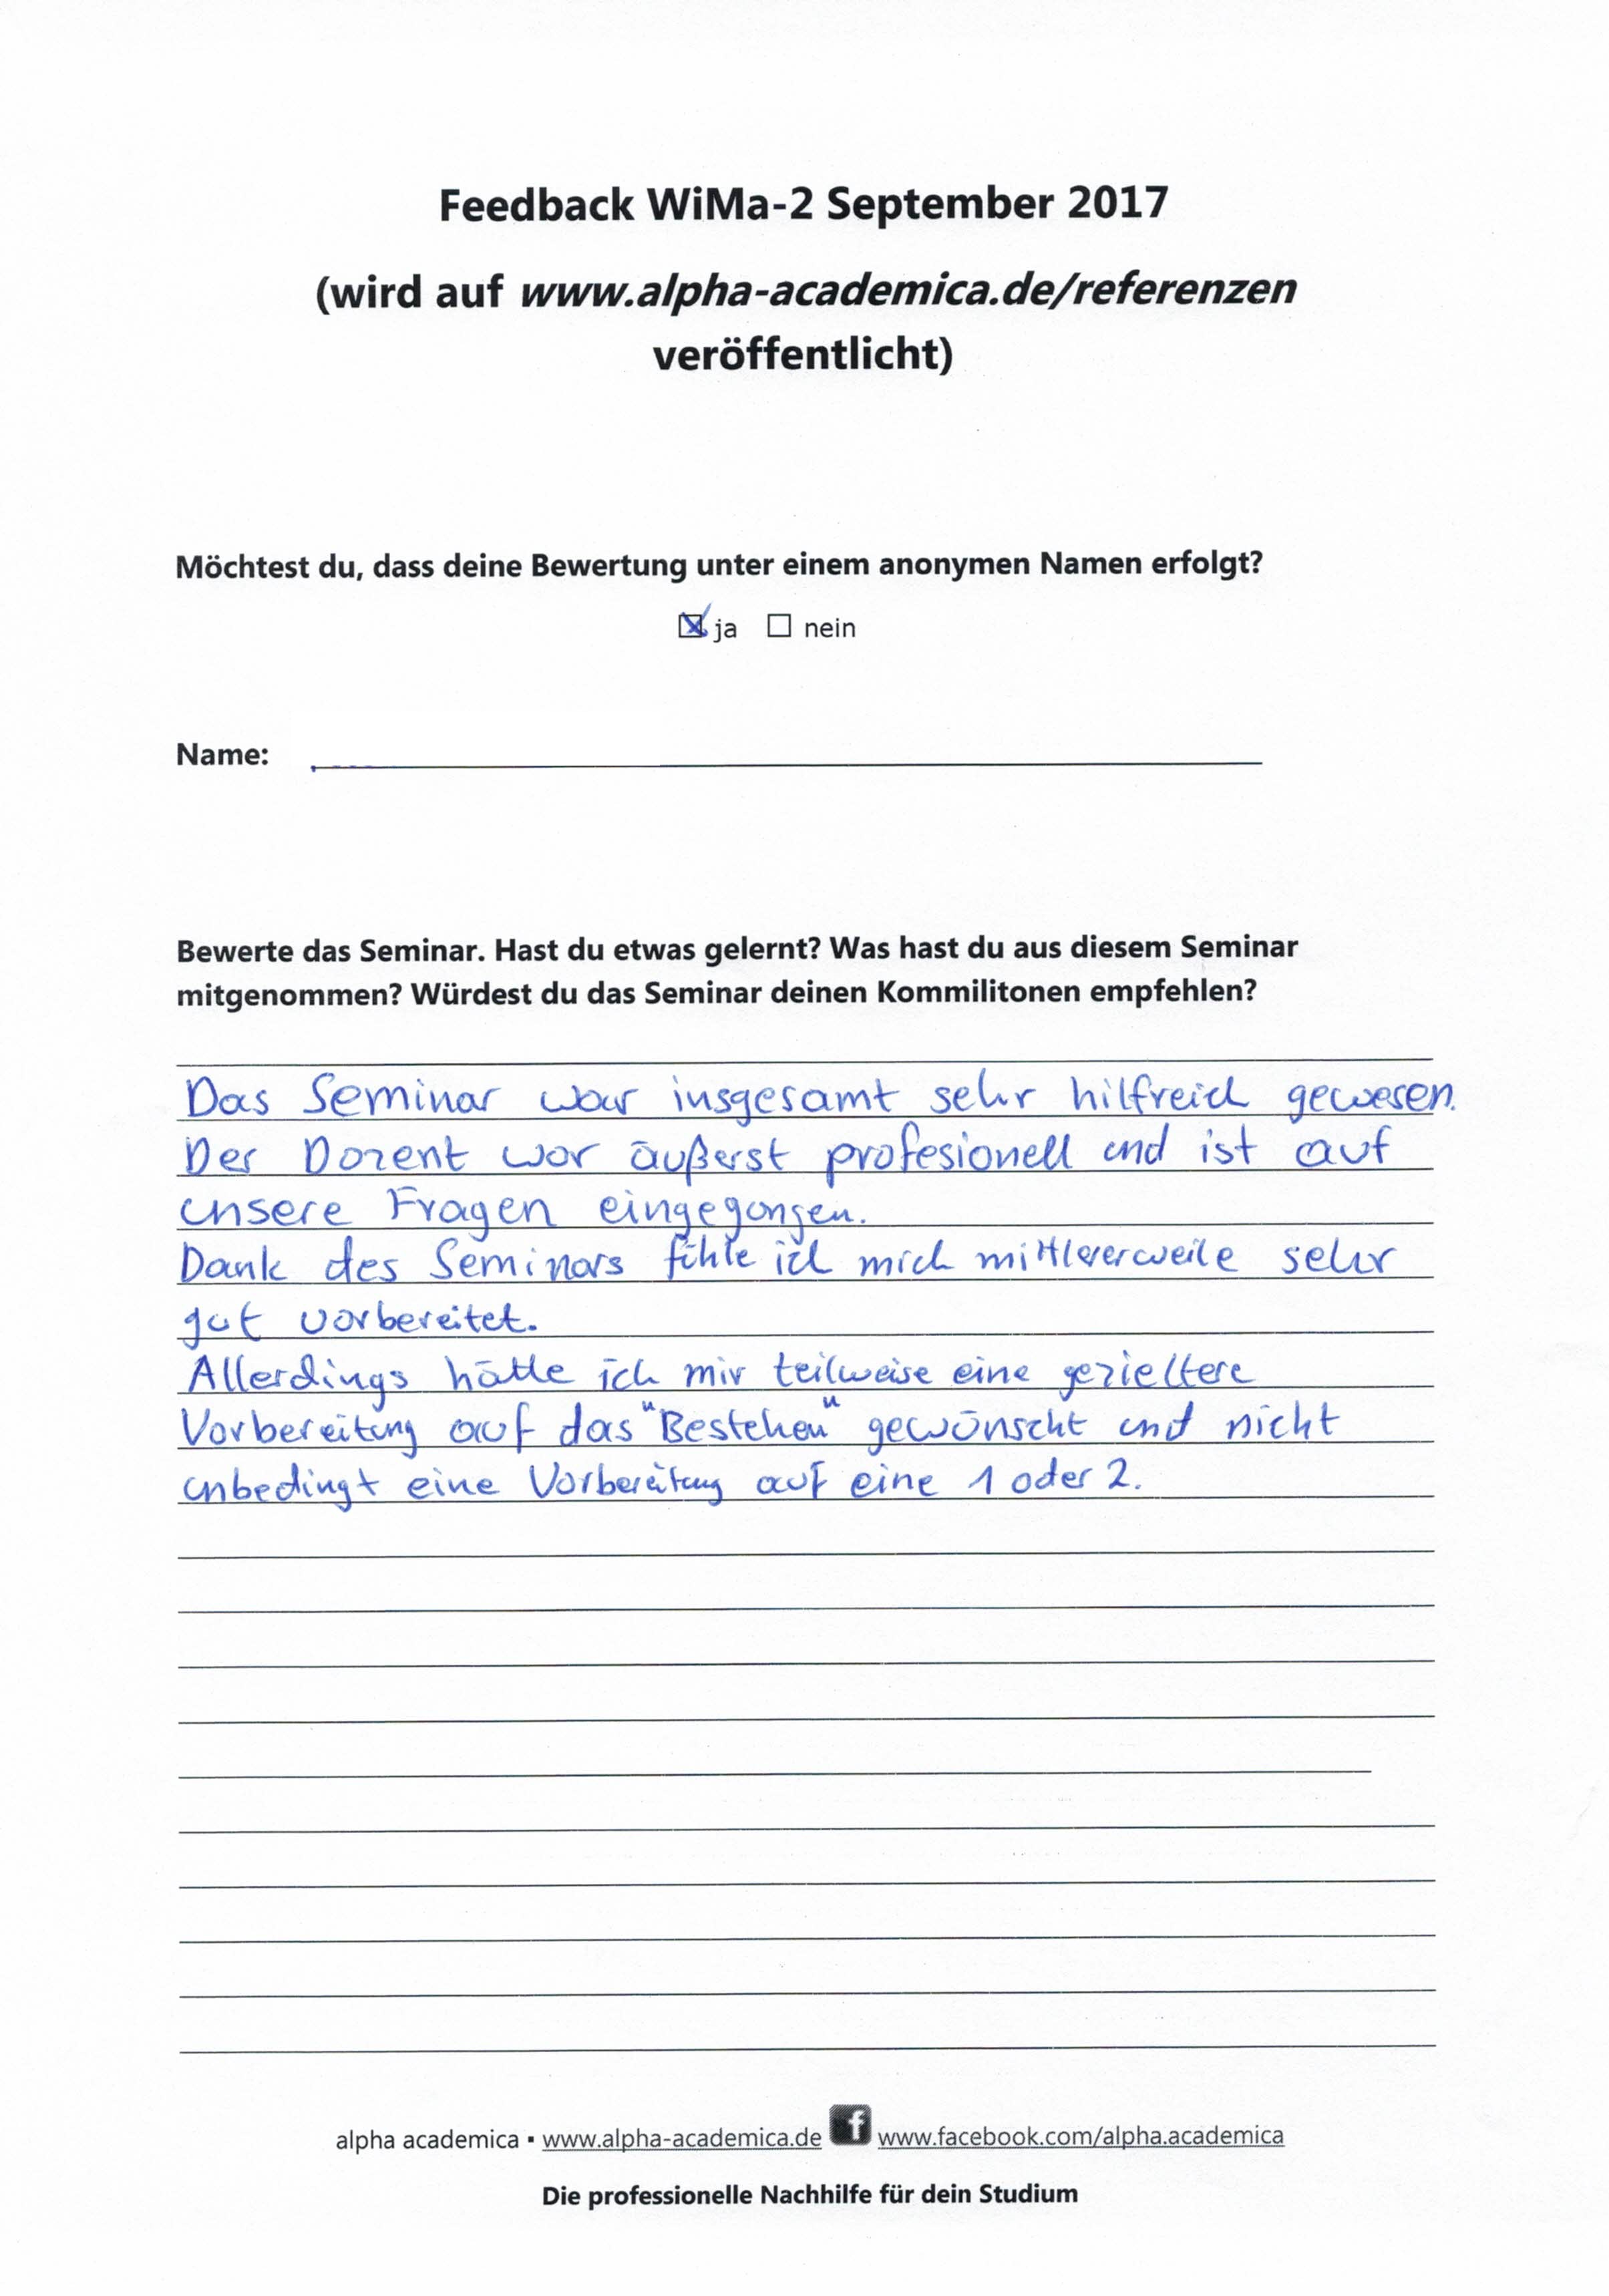 Feedback WiMa-2 September 2017
(wird auf www.alpha-academica.de/referenzen
veröffentlicht)
Möchtest du, dass deine Bewertung unter einem anonymen Namen erfolgt?
☒ ja ☐ nein
Name:
Bewerte das Seminar. Hast du etwas gelernt? Was hast du aus diesem Seminar
mitgenommen? Würdest du das Seminar deinen Kommilitonen empfehlen?
Das Seminar war insgesamt sehr hilfreich gewesen.
Der Dozent war äußerst profesionell und ist auf
unsere Fragen eingegangen.
Dank des Seminars fühle ich mich mittlererweile sehr
gut vorbereitet.
Allerdings hätte ich mir teilweise eine gezieltere
Vorbereitung auf das "Bestehen" gewünscht und nicht
unbedingt eine Vorbereitung auf eine 1 oder 2.
alpha academica ▪ www.alpha-academica.de f www.facebook.com/alpha.academica
Die professionelle Nachhilfe für dein Studium